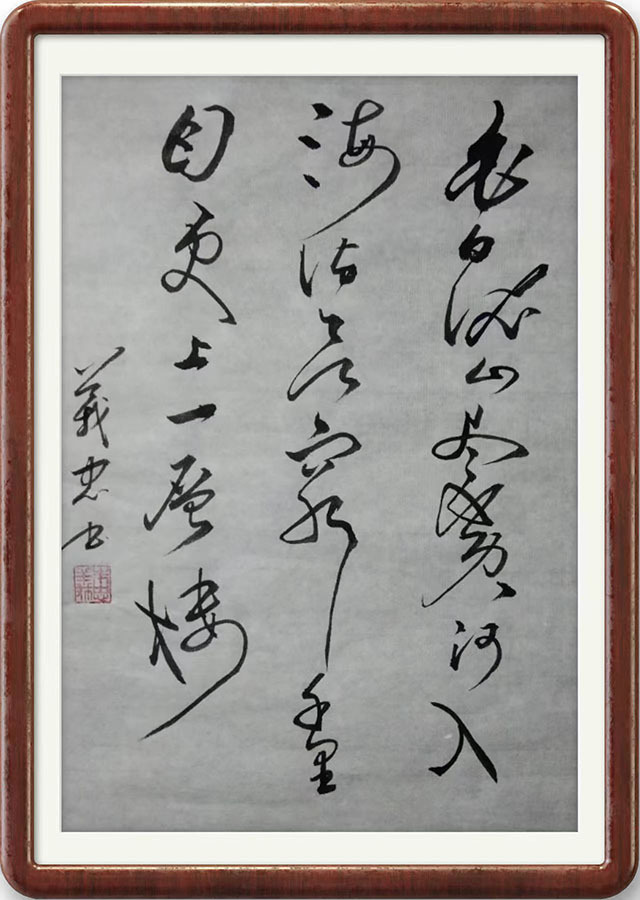 白日依山尽黄河入
海流欲窮千里
目更上一層楼
義忠书